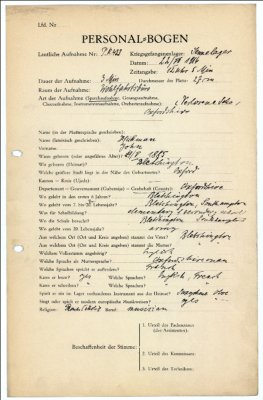 Lfd. Nr.
PERSONAL-BOGEN
Lautliche Aufnahme Nr.: PK 422 Kriegsgefangenenlager:
Datum:
Zeitangabe:
Dauer der Aufnahme: 3 Min Durchmesser der Platte: 27 cm
Raum der Aufnahme:
Art der Aufnahme (Sprechaufnahme, Gesangsaufnahme,
Choraufnahme, Instrumentenaufnahme, Orchesteraufnahme):
Oxfordshire
Name (in der Muttersprache geschrieben):
Name (lateinisch geschrieben):
Vorname: John
Wann geboren (oder ungefähres Alter)?
Wo geboren (Heimat)? Bletchington
Welche größere Stadt liegt in der Nähe des Geburtsortes? Oxford
Kanton — Kreis (Ujedz):
Departement — Gouvernement (Gubernija) — Grafschaft (County): Oxfordshire
Wo gelebt in den ersten 6 Jahren? Bletchington
Wo gelebt vom 7. bis 20. Lebensjahr? Bletchington, Southampton
Was für Schulbildung? elementary
Wo die Schule besucht? Bletchington
Wo gelebt vom 20. Lebensjahr? army
Aus welchem Ort (Ort und Kreis angeben) stammt der Vater? Bletchington
Aus welchem Ort (Ort und Kreis angeben) stammt die Mutter? "
Welchem Volksstamm angehörig?
Welche Sprache als Muttersprache?
Welche Sprachen spricht er außerdem? French
Kann er lesen? yes Welche Sprachen? English, French
Kann er schreiben? " Welche Sprachen? " "
Spielt er ein im Lager vorhandenes Instrument aus der Heimat?
Singt oder spielt er modern europäische Musikweisen?
Religion: Beruf: musician
Beschaffenheit der Stimme:
1. Urteil des Fachmannes
(des Assistenten):
2. Urteil des Kommissars:
3. Urteil des Technikers: